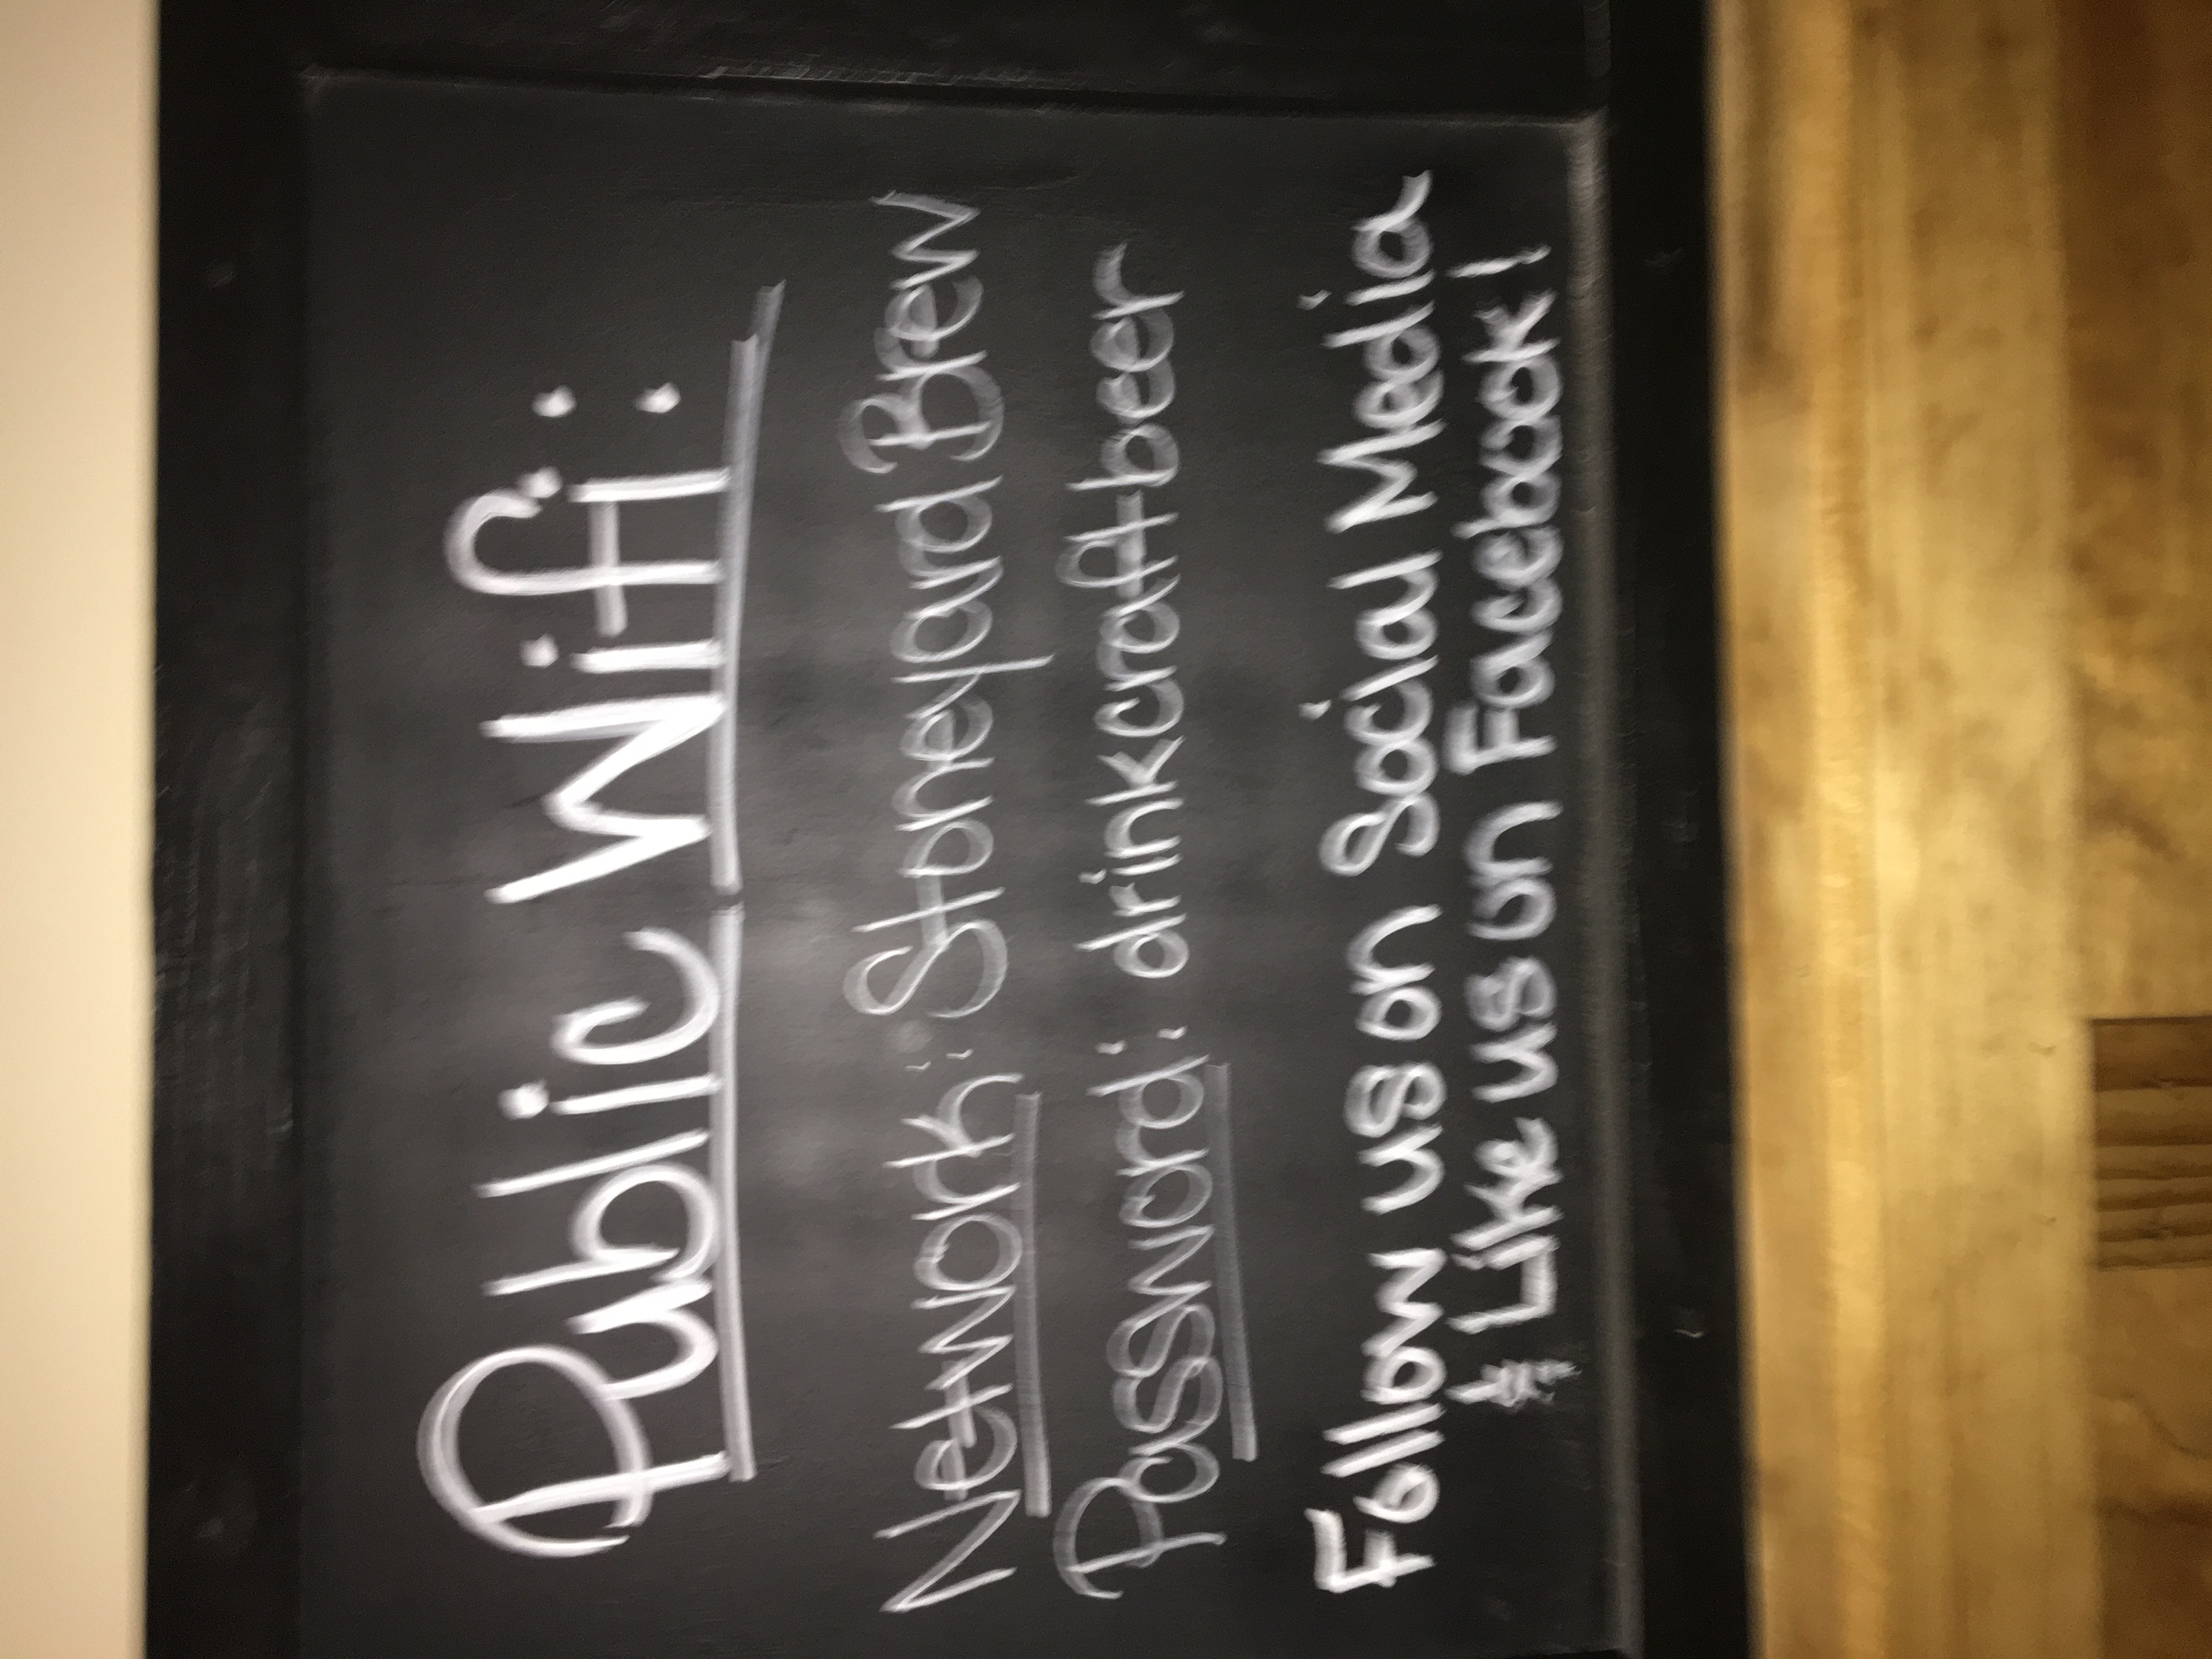 Public Wifi:
Network: Stoneyard Brew
Password: drinkcraftbeer
Follow us on Social Media
& Like us on Facebook!